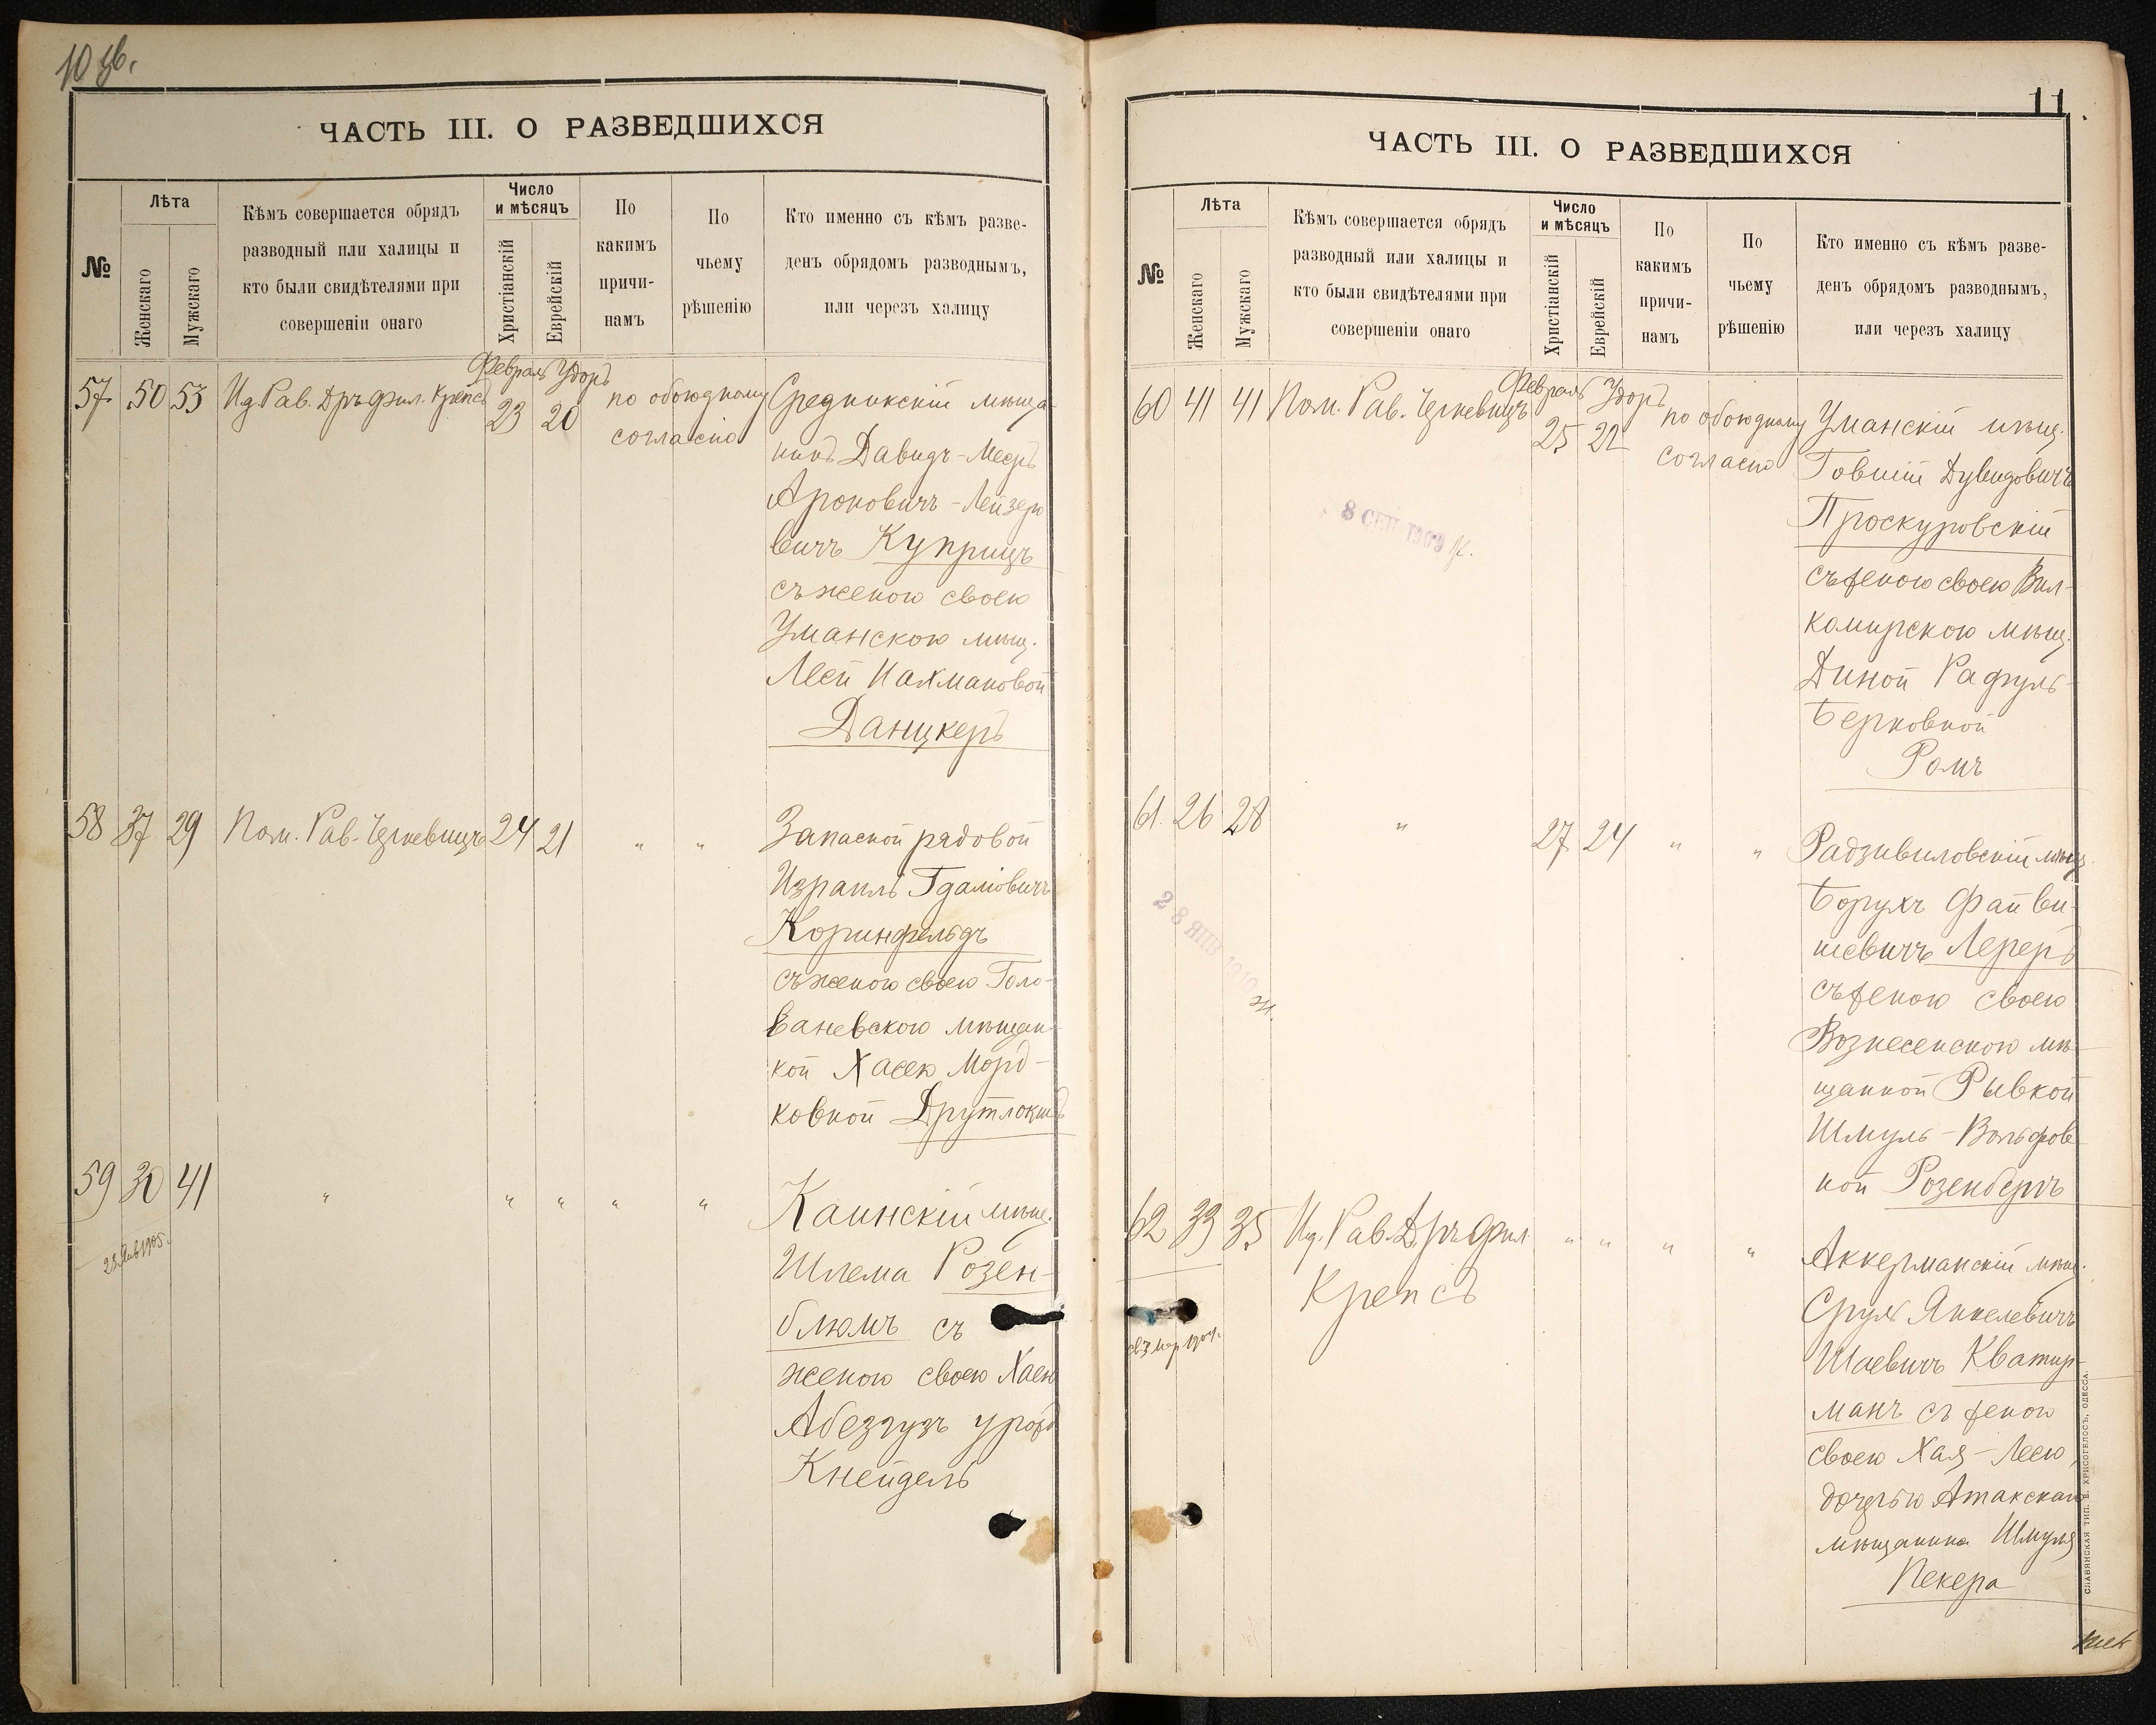 10 об.
ЧАСТЬ III. О РАЗВЕДШИХСЯ
№
Лѣта
Женскаго
Мужскаго
Кѣмъ совершается обрядъ
разводный или халицы и
кто были свидѣтелями при
совершеніи онаго
Число
и мѣсяцъ
Христіанскій
Еврейскій
По
какимъ
причи-
намъ
По
чьему
рѣшенію
Кто именно съ кѣмъ разве-
денъ обрядомъ разводнымъ,
или черезъ халицу
Февраль Удоръ
57 50 53 Ид. Рав. Дръ фил. Крепсъ 23 20 по обоюдному
согласію
Средникскій мѣща-
нинъ Давидъ-Мееръ
Ароновичъ-Лейзеро
вичъ Куприцъ
съ женою своею
Уманскою мѣщ.
Леей Нахмановой
Данцкеръ
58 37 29 Пом. Рав. Цункевицъ 24 21 " "
Запасной рядовой
Израиль Гдаліовичъ
Коринфельдъ
съ женою своею Голо-
ваневскою мѣщан-
кой Хасею Морд-
ковной Друтлокшъ
59 30 41 " " " " "
23 Янв 1905.
Каинскій мѣщ.
Шлема Розен-
блюмъ съ
женою своею Хаею
Абезгузъ урожд
Кнейдель
11
ЧАСТЬ III. О РАЗВЕДШИХСЯ
№
Лѣта
Женскаго
Мужскаго
Кѣмъ совершается обрядъ
разводный или халицы и
кто были свидѣтелями при
совершеніи онаго
Число
и мѣсяцъ
Христіанскій
Еврейскій
По
какимъ
причи-
намъ
По
чьему
рѣшенію
Кто именно съ кѣмъ разве-
денъ обрядомъ разводнымъ,
или черезъ халицу
Февраль Удоръ
60 41 41 Пом. Рав. Цункевицъ 25 22 по обоюдному
согласію
8 СЕН 1909
Уманскій мѣщ.
Говшій Дувидовичъ
Проскуровскій
съ женою своею Вил-
комирскою мѣщ.
Диной Рафуль-
Берковной
Ромъ
61 26 28 " 27 24 " "
28 ЯНВ 1910
Радзивиловскій мѣщ.
Борухъ Файви-
шевичъ Лереръ
съ женою своею
Вознесенскою мѣ-
щанкой Рывкой
Шмуль-Вольфов
ной Розенбергъ
62 33 35 Ид. Рав. Дръ Фил " " " "
Крепсъ
Аккерманскій мѣщ.
Сруль Янкелевичъ
Шаевичъ Кватир-
манъ съ женою
своею Хая-Леею,
дочерью Атакскаго
мѣщанина Шмуля
Пекера
СЛАВЯНСКАЯ ТИП. Е. ХРИСОГЕЛОСЪ, ОДЕССА.